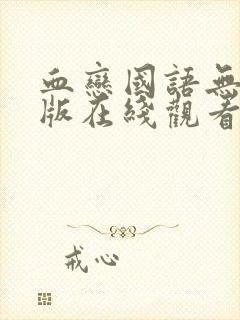 血戀國語無
版在綫觀看
戒心